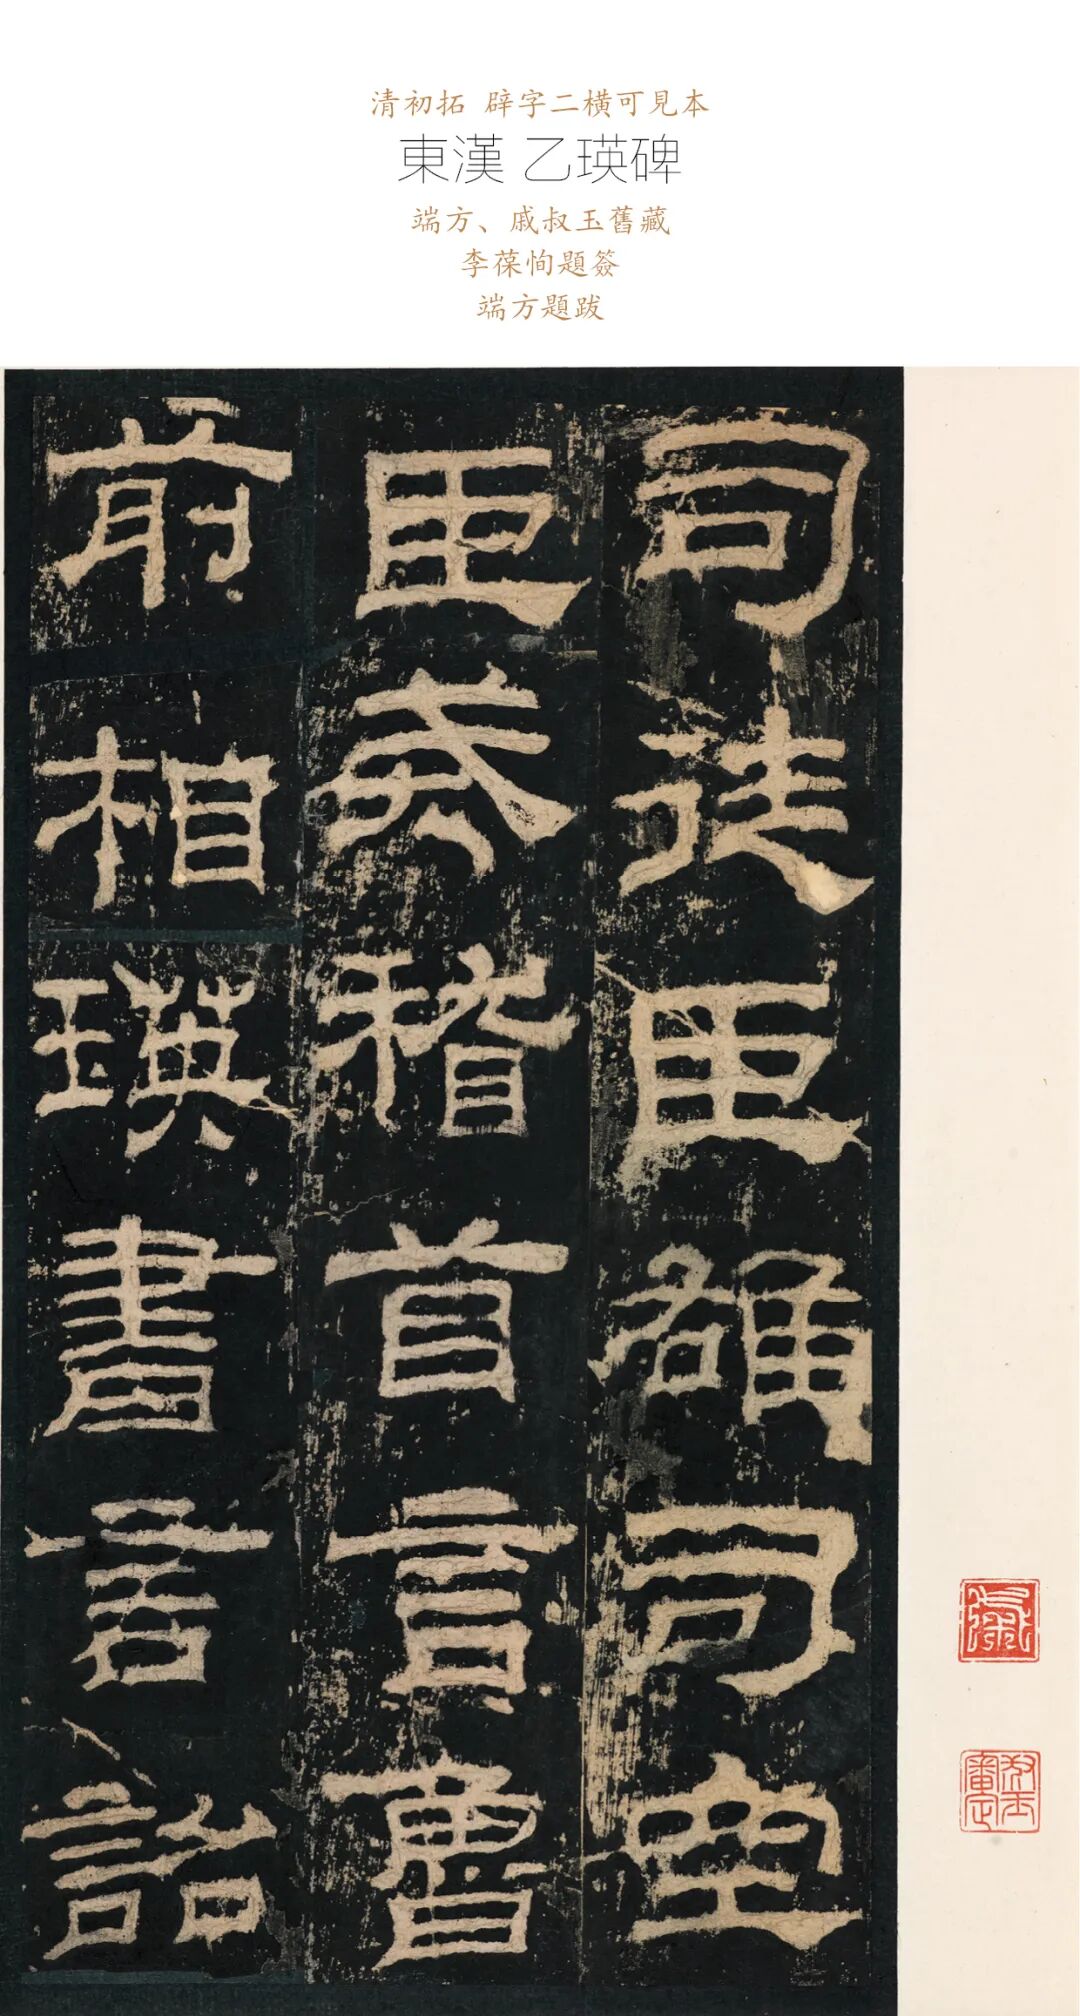 清初拓 辟字二橫可見本
東漢 乙瑛碑
端方、戚叔玉舊藏
李葆恂題簽
端方題跋
司徒臣雄司空
臣戒稽首言魯
前相瑛書言詔